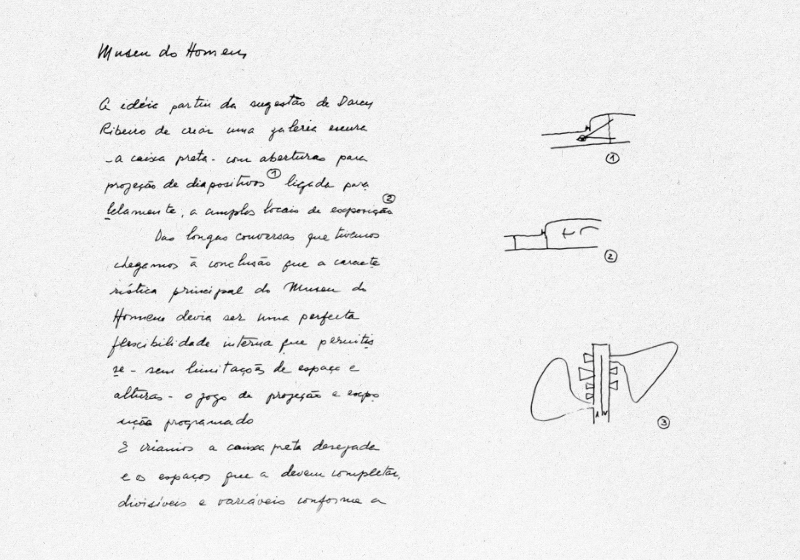 Museu do Homem
A idéia partiu da sugestão de Darcy
Ribeiro de criar uma galeria escura
- a caixa preta - com aberturas para
projeção de diapositivos ① ligada para
lelamente, a amplos locais de exposição ②
Das longas conversas que tivemos
chegamos à conclusão que a caracte
rística principal do Museu do
Homem devia ser uma perfeita
flexibilidade interna que permitis
se - sem limitações de espaço e
alturas - o jogo de projeção e expo
sição programado
E criamos a caixa preta desejada
e os espaços que a devem completar,
divisíveis e variáveis conforme a
①
②
③